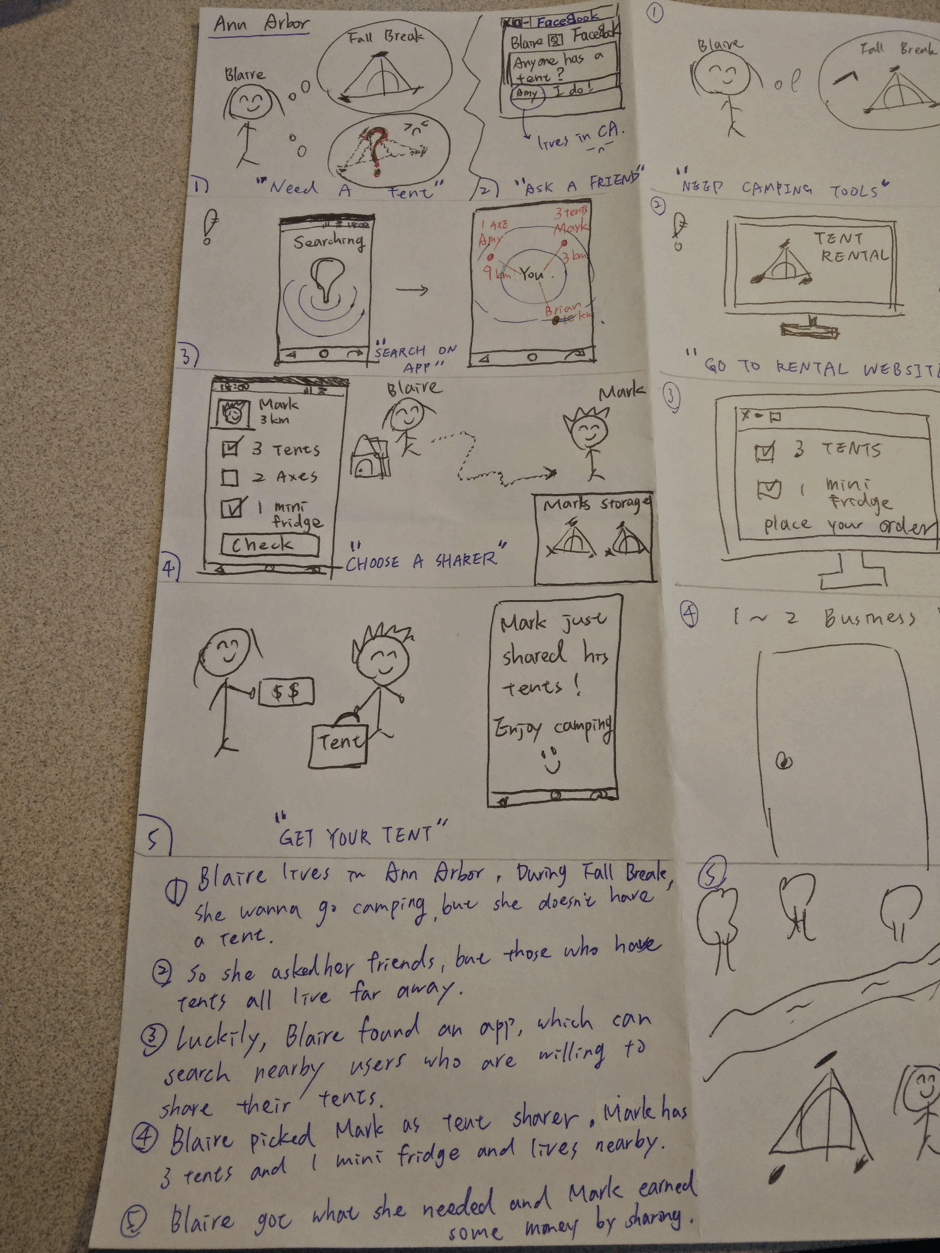 Ann Arbor
Blaire
Fall Break
?
1) "Need A Tent"
Facebook
Blaire Facebook
Anyone has a
tent?
Amy I do!
lives in CA.
2) "ASK A FRIEND"
!
Searching
3) "SEARCH ON
APP"
1 AXE
Amy
9 km
3 tents
Mark
3 km
You
Brian
km
18:00
Mark
3 km
3 Tents
2 Axes
1 mini
fridge
Check
4) "CHOOSE A SHARER"
Blaire
Mark
Marks storage
$$
Tent
Mark just
shared his
tents!
Enjoy camping
5) "GET YOUR TENT"
① Blaire lives in Ann Arbor. During Fall Break,
she wanna go camping, but she doesn't have
a tent.
② So she asked her friends, but those who have
tents all live far away.
③ Luckily, Blaire found an app, which can
search nearby users who are willing to
share their tents.
④ Blaire picked Mark as tent sharer. Mark has
3 tents and 1 mini fridge and lives nearby.
⑤ Blaire got what she needed and Mark earned
some money by sharing.
①
Blaire
Fall Break
"NEED CAMPING TOOLS"
②
!
TENT
RENTAL
"GO TO RENTAL WEBSITE
③
3 TENTS
1 mini
fridge
place your order
④ 1~2 Business
⑤